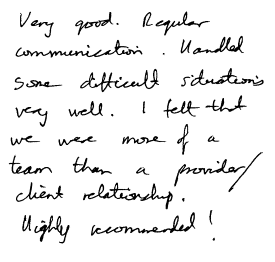 Very good. Regular
communication. Handled
some difficult situations
very well. I felt that
we were more of a
team than a provider/
client relationship.
Highly recommended!